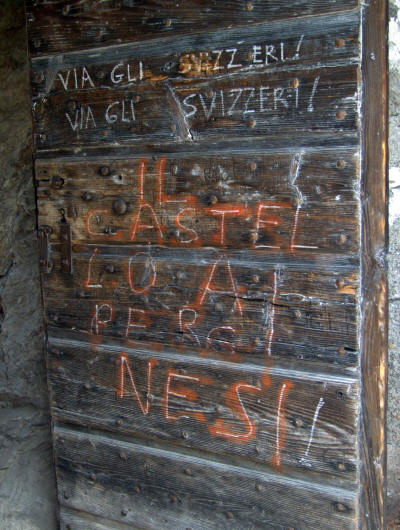 VIA GLI SVIZZERI!
VIA GLI SVIZZERI!
IL
CASTEL
LO AI
PERGI
NESI!